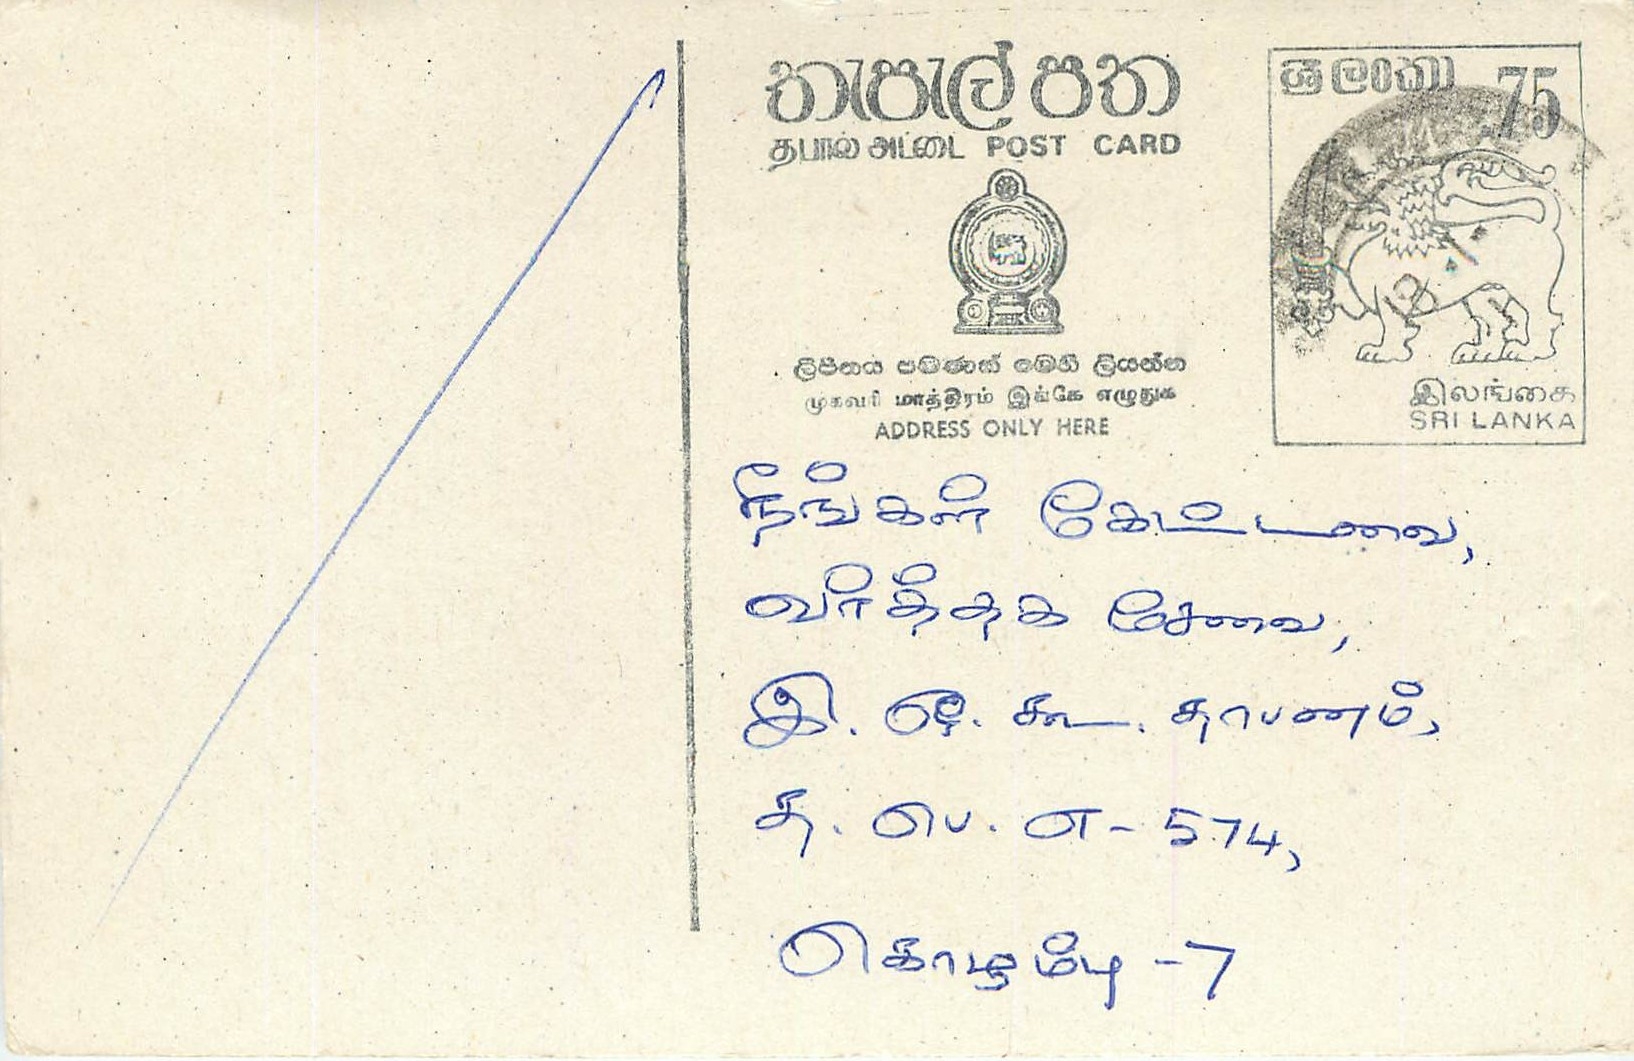 තැපැල් පත
தபால் அட்டை POST CARD
ශ්‍රී ලංකා 75
ලිපිනය පමණක් මෙහි ලියන්න
முகவரி மாத்திரம் இங்கே எழுதுக
ADDRESS ONLY HERE
இலங்கை
SRI LANKA
நீங்கள் கேட்டவை,
வர்த்தக சேவை,
இ. ஒ. கூ. தாபனம்,
த. பெ. எ - 574,
கொழும்பு - 7